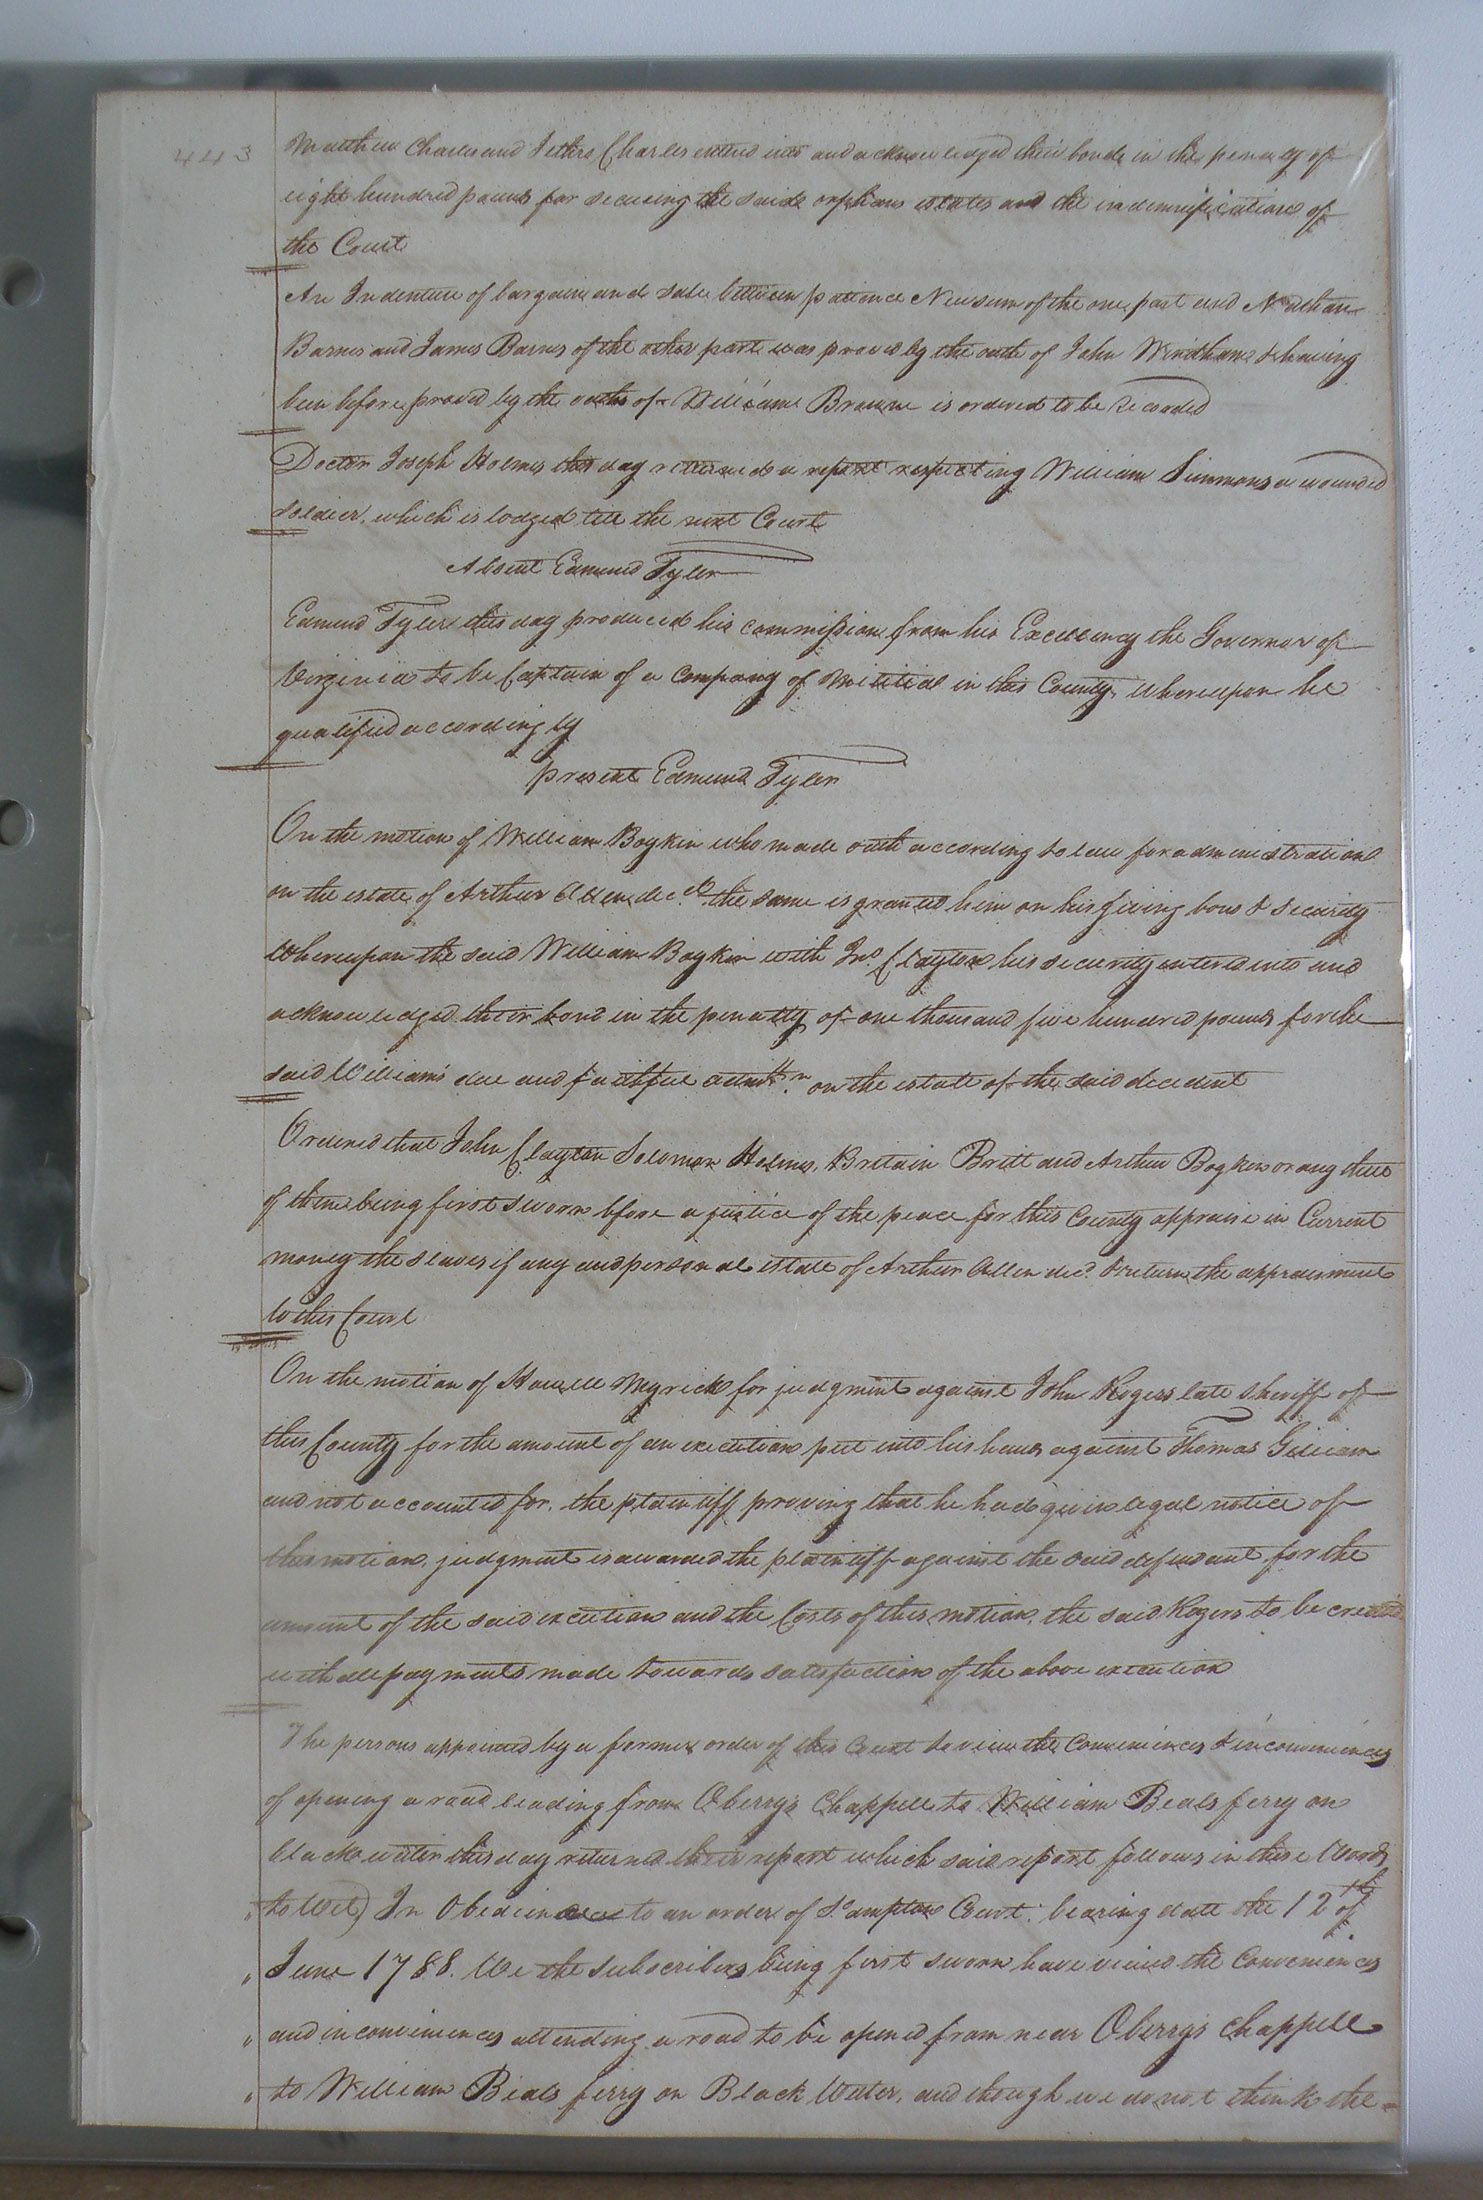 443
Matthew Charles and Jethro Charles entered into and acknowledged their bonds in the penalty of
eight hundred pounds for securing the said orphans estates and the indemnification of
the Court
An Indenture of bargain and sale between patience Newsum of the one part and Nathan
Barnes and James Barnes of the other part was proved by the oath of John Windham & having
been before proved by the oaths of William Browne is ordered to be Recorded
Doctor Joseph Holmes this day returned a report respecting William Simmons a wounded
soldier, which is lodged till the next Court
Absent Edmund Tyler
Edmund Tyler this day produced his commission from his Excellency the Governor of
Virginia to be Captain of a Company of Militia in this County, whereupon he
qualified accordingly
present Edmund Tyler
On the motion of William Boykin who made oath according to law for administration
on the estate of Arthur Allen dec.ed the same is granted him on his giving bond & security
Whereupon the said William Boykin with Jno. Clayton his security entered into and
acknowledged their bond in the penalty of one thousand five hundred pounds for the
said William's due and faithful admtn. on the estate of the said decedent
Ordered that John Clayton Solomon Holmes, Britain Britt and Arthur Boykin or any three
of them being first sworn before a justice of the peace for this County appraise in Current
money the slaves if any and personal estate of Arthur Allen decd. & return the appraisment
to this Court
On the motion of Howell Myrick for judgment against John Rogers late sheriff of
this County for the amount of an execution put into his hands against Thomas Gilliam
and not accounted for, the plaintiff proving that he had given legal notice of
this motion, judgment is awarded the plaintiff against the said defendant for the
amount of the said execution and the Costs of this motion, the said Rogers to be credited
with all payments made towards satisfaction of the above execution
The persons appointed by a former order of this Court to view the Conveniences & inconveniences
of opening a road leading from Oberry's Chappell to William Beals ferry on
blackwater this day returned their report which said report follows in these Words
" to Wit) In Obedience to an order of So.ampton Court bearing date the 12th of
" June 1788. We the subscribers being first sworn have viewed the Conveniences
" and inconveniences attending a road to be opened from near Oberry's chappell
" to William Beals ferry on Black Water, and though we do not think the